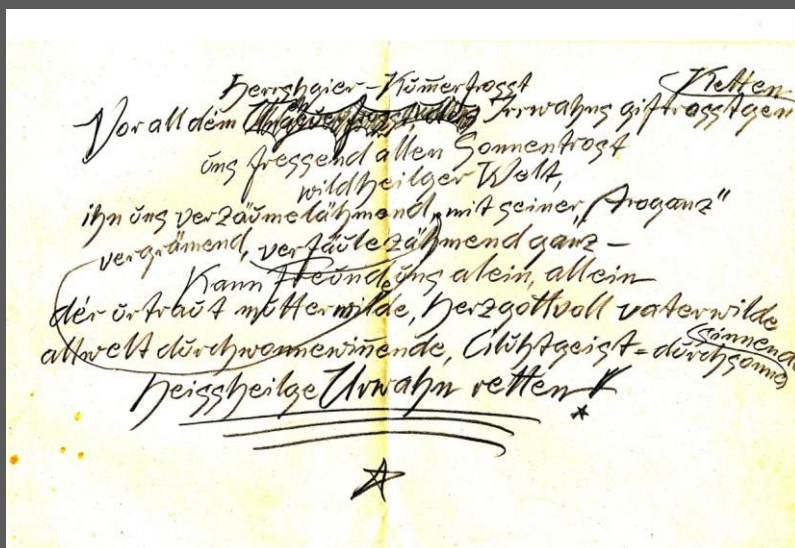 Herrshgier-Kümerfrosst
Vor all dem Irrwahns giftrasstgen Ketten
üns fressend allen Sonnentrost
wildheilger Welt,
ihn üns verzäümelähmend, mit seiner „Aroganz"
vergrämend, verfäülezähmend ganz –
Kann Freünd, üns alein, allein
der ürtraut mütterwilde, herzgottvoll vaterwilde
allwelt dürchwonnewinende, Glühtgeist = dürchsonnes
sinnend
Heissheilge Urwahn retten!